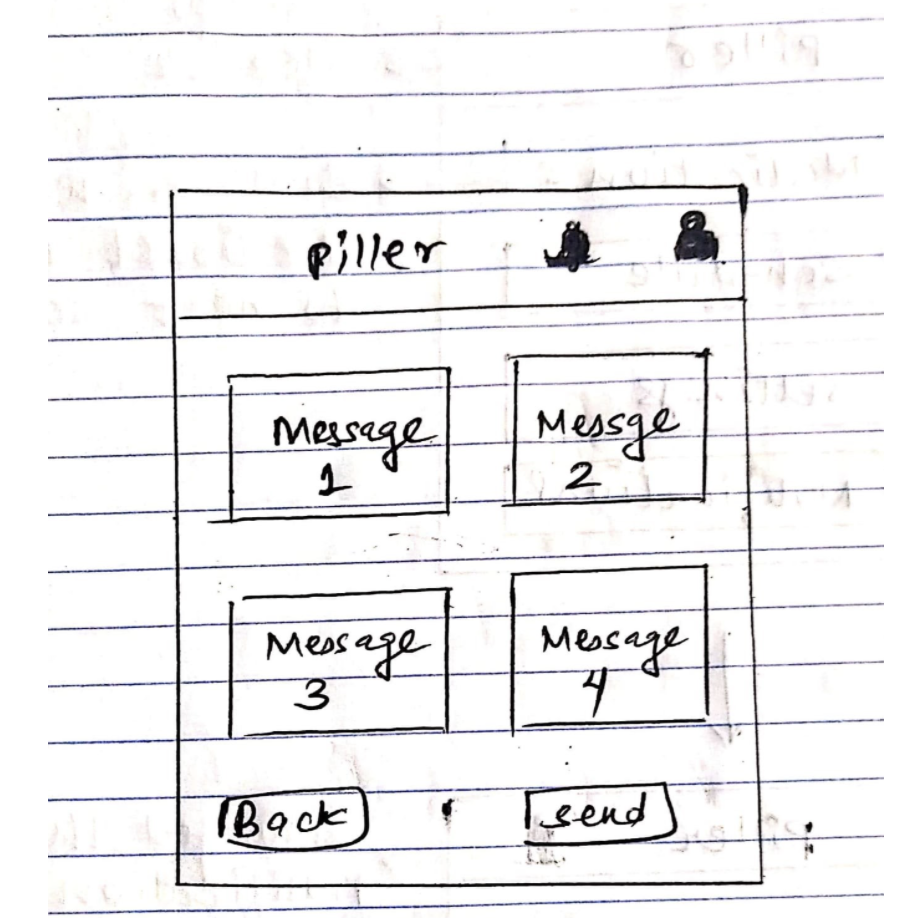 Piller
Message
1
Messge
2
Message
3
Message
4
Back
send